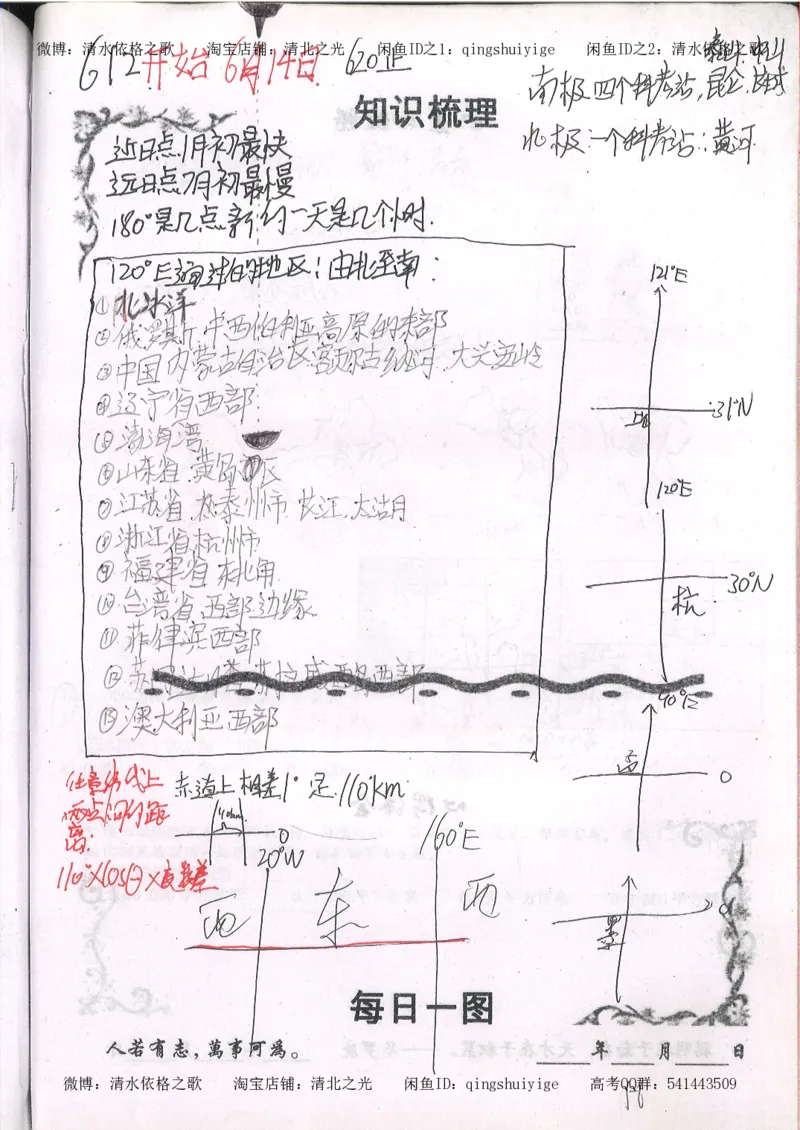 微博：清水依格之歌 淘宝店铺：清北之光 闲鱼ID之1：qingshuiyige 闲鱼ID之2：清水依格之歌
612开始 6月14日 620止
南极四个科考站,昆仑.长城
泰山.中山
北极一个科考站：黄河
知识梳理
近日点1月初最快
远日点7月初最慢
180°是几点新的一天是几个小时.
120°E通过的地区：由北至南：
①北冰洋
②俄罗斯.中西伯利亚高原的东部
③中国内蒙古自治区.额尔古纳河.大兴安岭
④辽宁省西部
⑤渤海湾
⑥山东省.黄岛西区
⑦江苏省.泰州市 长江.太湖
⑧浙江省杭州市
⑨福建省东北角
⑩台湾省西部边缘
⑪菲律宾西部
⑫苏拉威西岛西部
⑬澳大利亚西部
121°E
31°N
上
120°E
30°N
杭
90°E
0
任意纬线上
两点间的距
离.
110×cosθ×度数差
赤道上相差1°是110km
110km
0
20°W
160°E
西 东 西
墨
每日一图
人若有志，萬事可為。
年 月 日
微博：清水依格之歌 淘宝店铺：清北之光 闲鱼ID：qingshuiyige 高考QQ群：541443509